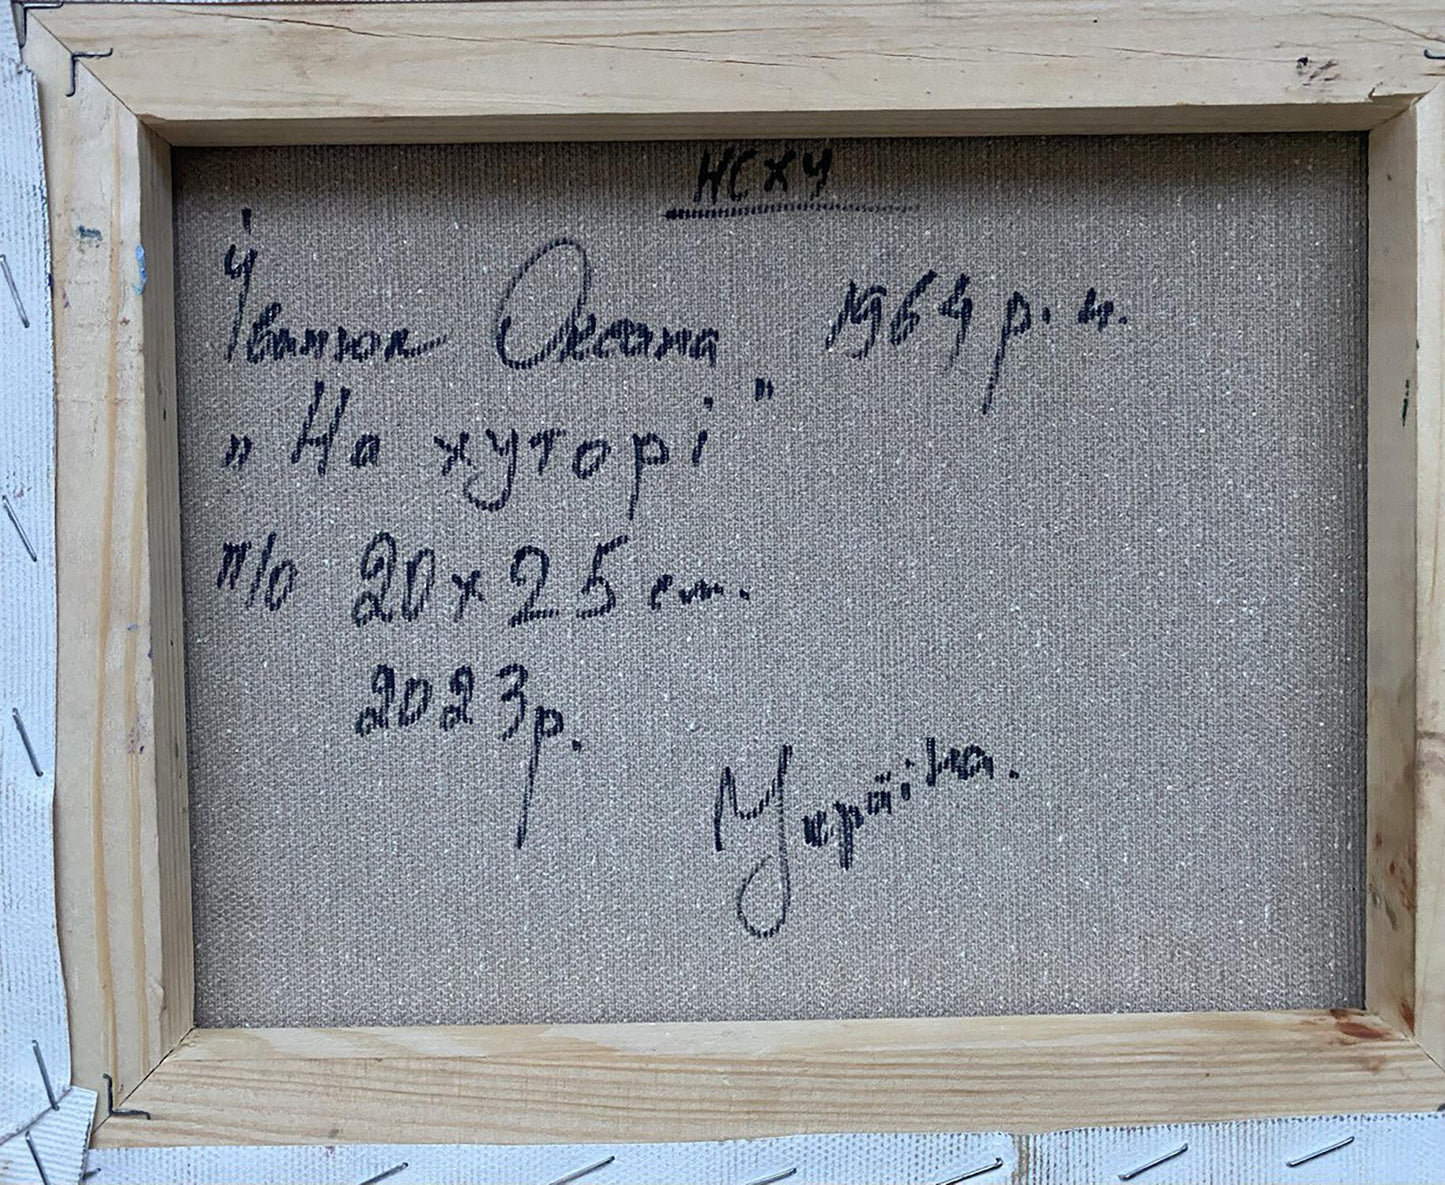 НСХУ
Іванюк Оксана 1964 р.н.
„На хуторі"
п/о 20х25 см.
2023р.
Україна.